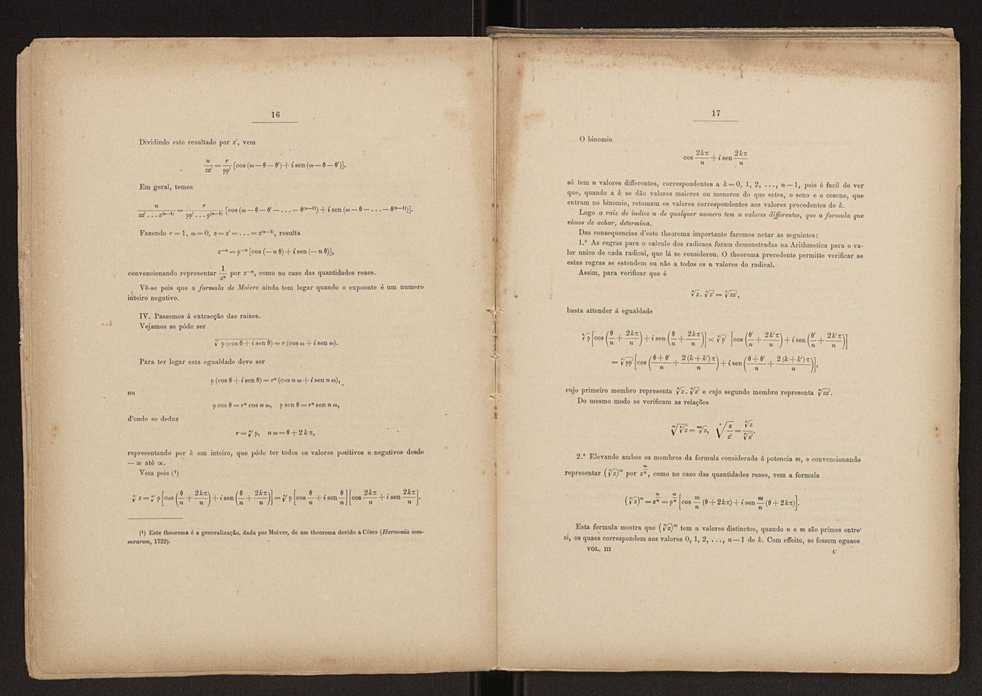 16
Dividindo este resultado por z', vem
u/zz' = r/ρρ' [cos (ω − θ − θ') + i sen (ω − θ − θ')].
Em geral, temos
u/zz' . . . z^(n−1) = r/ρρ' . . . ρ^(n−1) [cos (ω − θ − θ' − . . . − θ^(n−1)) + i sen (ω − θ − . . . − θ^(n−1))].
Fazendo r = 1, ω = 0, z = z' = . . . = z^(n−1), resulta
z^−n = ρ^−n [cos (− n θ) + i sen (− n θ)],
convencionando representar 1/z^n por z^−n, como no caso das quantidades reaes.
Vê-se pois que a formula de Moivre ainda tem logar quando o expoente é um numero
inteiro negativo.
IV. Passemos á extracção das raizes.
Vejamos se póde ser
ⁿ√ρ (cos θ + i sen θ) = r (cos ω + i sen ω).
Para ter logar esta egualdade deve ser
ρ (cos θ + i sen θ) = r^n (cos n ω + i sen n ω),
ou
ρ cos θ = r^n cos n ω, ρ sen θ = r^n sen n ω,
d'onde se deduz
r = ⁿ√ρ, n ω = θ + 2 k π,
representando por k um inteiro, que póde ter todos os valores positivos e negativos desde
— ∞ até ∞.
Vem pois (¹)
ⁿ√z = ⁿ√ρ [cos (θ/n + 2kπ/n) + i sen (θ/n + 2kπ/n)] = ⁿ√ρ [cos θ/n + i sen θ/n] [cos 2kπ/n + i sen 2kπ/n].
(¹) Este theorema é a generalização, dada por Moivre, de um theorema devido a Côtes (Harmonia men-
surarum, 1722).
17
O binomio
cos 2kπ/n + i sen 2kπ/n
só tem n valores differentes, correspondentes a k = 0, 1, 2, . . ., n — 1, pois é facil de ver
que, quando a k se dão valores maiores ou menores do que estes, o seno e o coseno, que
entram no binomio, retomam os valores correspondentes aos valores precedentes de k.
Logo a raiz de indice n de qualquer numero tem n valores differentes, que a formula que
vimos de achar, determina.
Das consequencias d'este theorema importante faremos notar as seguintes:
1.ª As regras para o calculo dos radicaes foram demonstradas na Arithmetica para o va-
lor unico de cada radical, que lá se considerou. O theorema precedente permitte verificar se
estas regras se estendem ou não a todos os n valores do radical.
Assim, para verificar que é
ⁿ√z . ⁿ√z' = ⁿ√zz',
basta attender á egualdade
ⁿ√ρ [cos (θ/n + 2kπ/n) + i sen (θ/n + 2kπ/n)] × ⁿ√ρ' [cos (θ'/n + 2k'π/n) + i sen (θ'/n + 2k'π/n)]
= ⁿ√ρρ' [cos (θ + θ'/n + 2 (k + k') π/n) + i sen (θ + θ'/n + 2 (k + k') π/n)],
cujo primeiro membro representa ⁿ√z . ⁿ√z' e cujo segundo membro representa ⁿ√zz'.
Do mesmo modo se verificam as relações
ᵐ√ⁿ√z = ᵐⁿ√z, ⁿ√z/z' = ⁿ√z/ⁿ√z'.
2.ª Elevando ambos os membros da formula considerada á potencia m, e convencionando
representar (ⁿ√z)^m por z^m/n, como no caso das quantidades reaes, vem a formula
(ⁿ√z)^m = z^m/n = ρ^m/n [cos m/n (θ + 2kπ) + i sen m/n (θ + 2kπ)].
Esta formula mostra que (ⁿ√z)^m tem n valores distinctos, quando n e m são primos entre
si, os quaes correspondem aos valores 0, 1, 2, . . ., n — 1 de k. Com effeito, se fossem eguaes
VOL. III